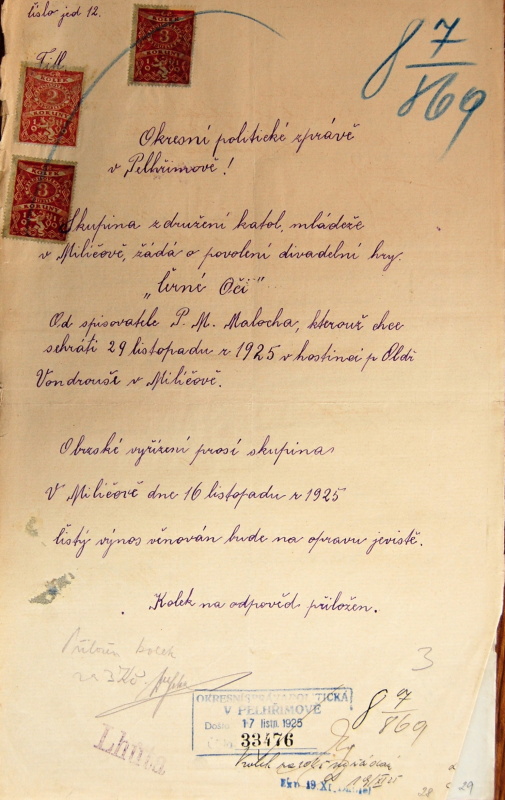 číslo jed 12.
Titl.
8 7/869
Okresní politické zprávě
v Pelhřimově!
Skupina združení katol, mládeže
v Miličově, žádá o povolení divadelní hry.
„Črné Oči"
Od spisovatele P. M. Malocha, kterouž chce
sehráti 29 listopadu r 1925 v hostinci p Oldř
Vondrouše v Miličově.
Obzské vyřízení prosí skupina
V Miličově dne 16 listopadu r 1925
čistý výnos věnován bude na opravu jeviště.
Kolek na odpověd přiložen.
kolek
na 3 Kč
3
OKRESNÍ SPRÁVA POLITICKÁ
V PELHŘIMOVĚ
Došlo 17 listn. 1925
33476
8 7/869
Lhůta
kolek
19/XI 25
19. XI.
28
29